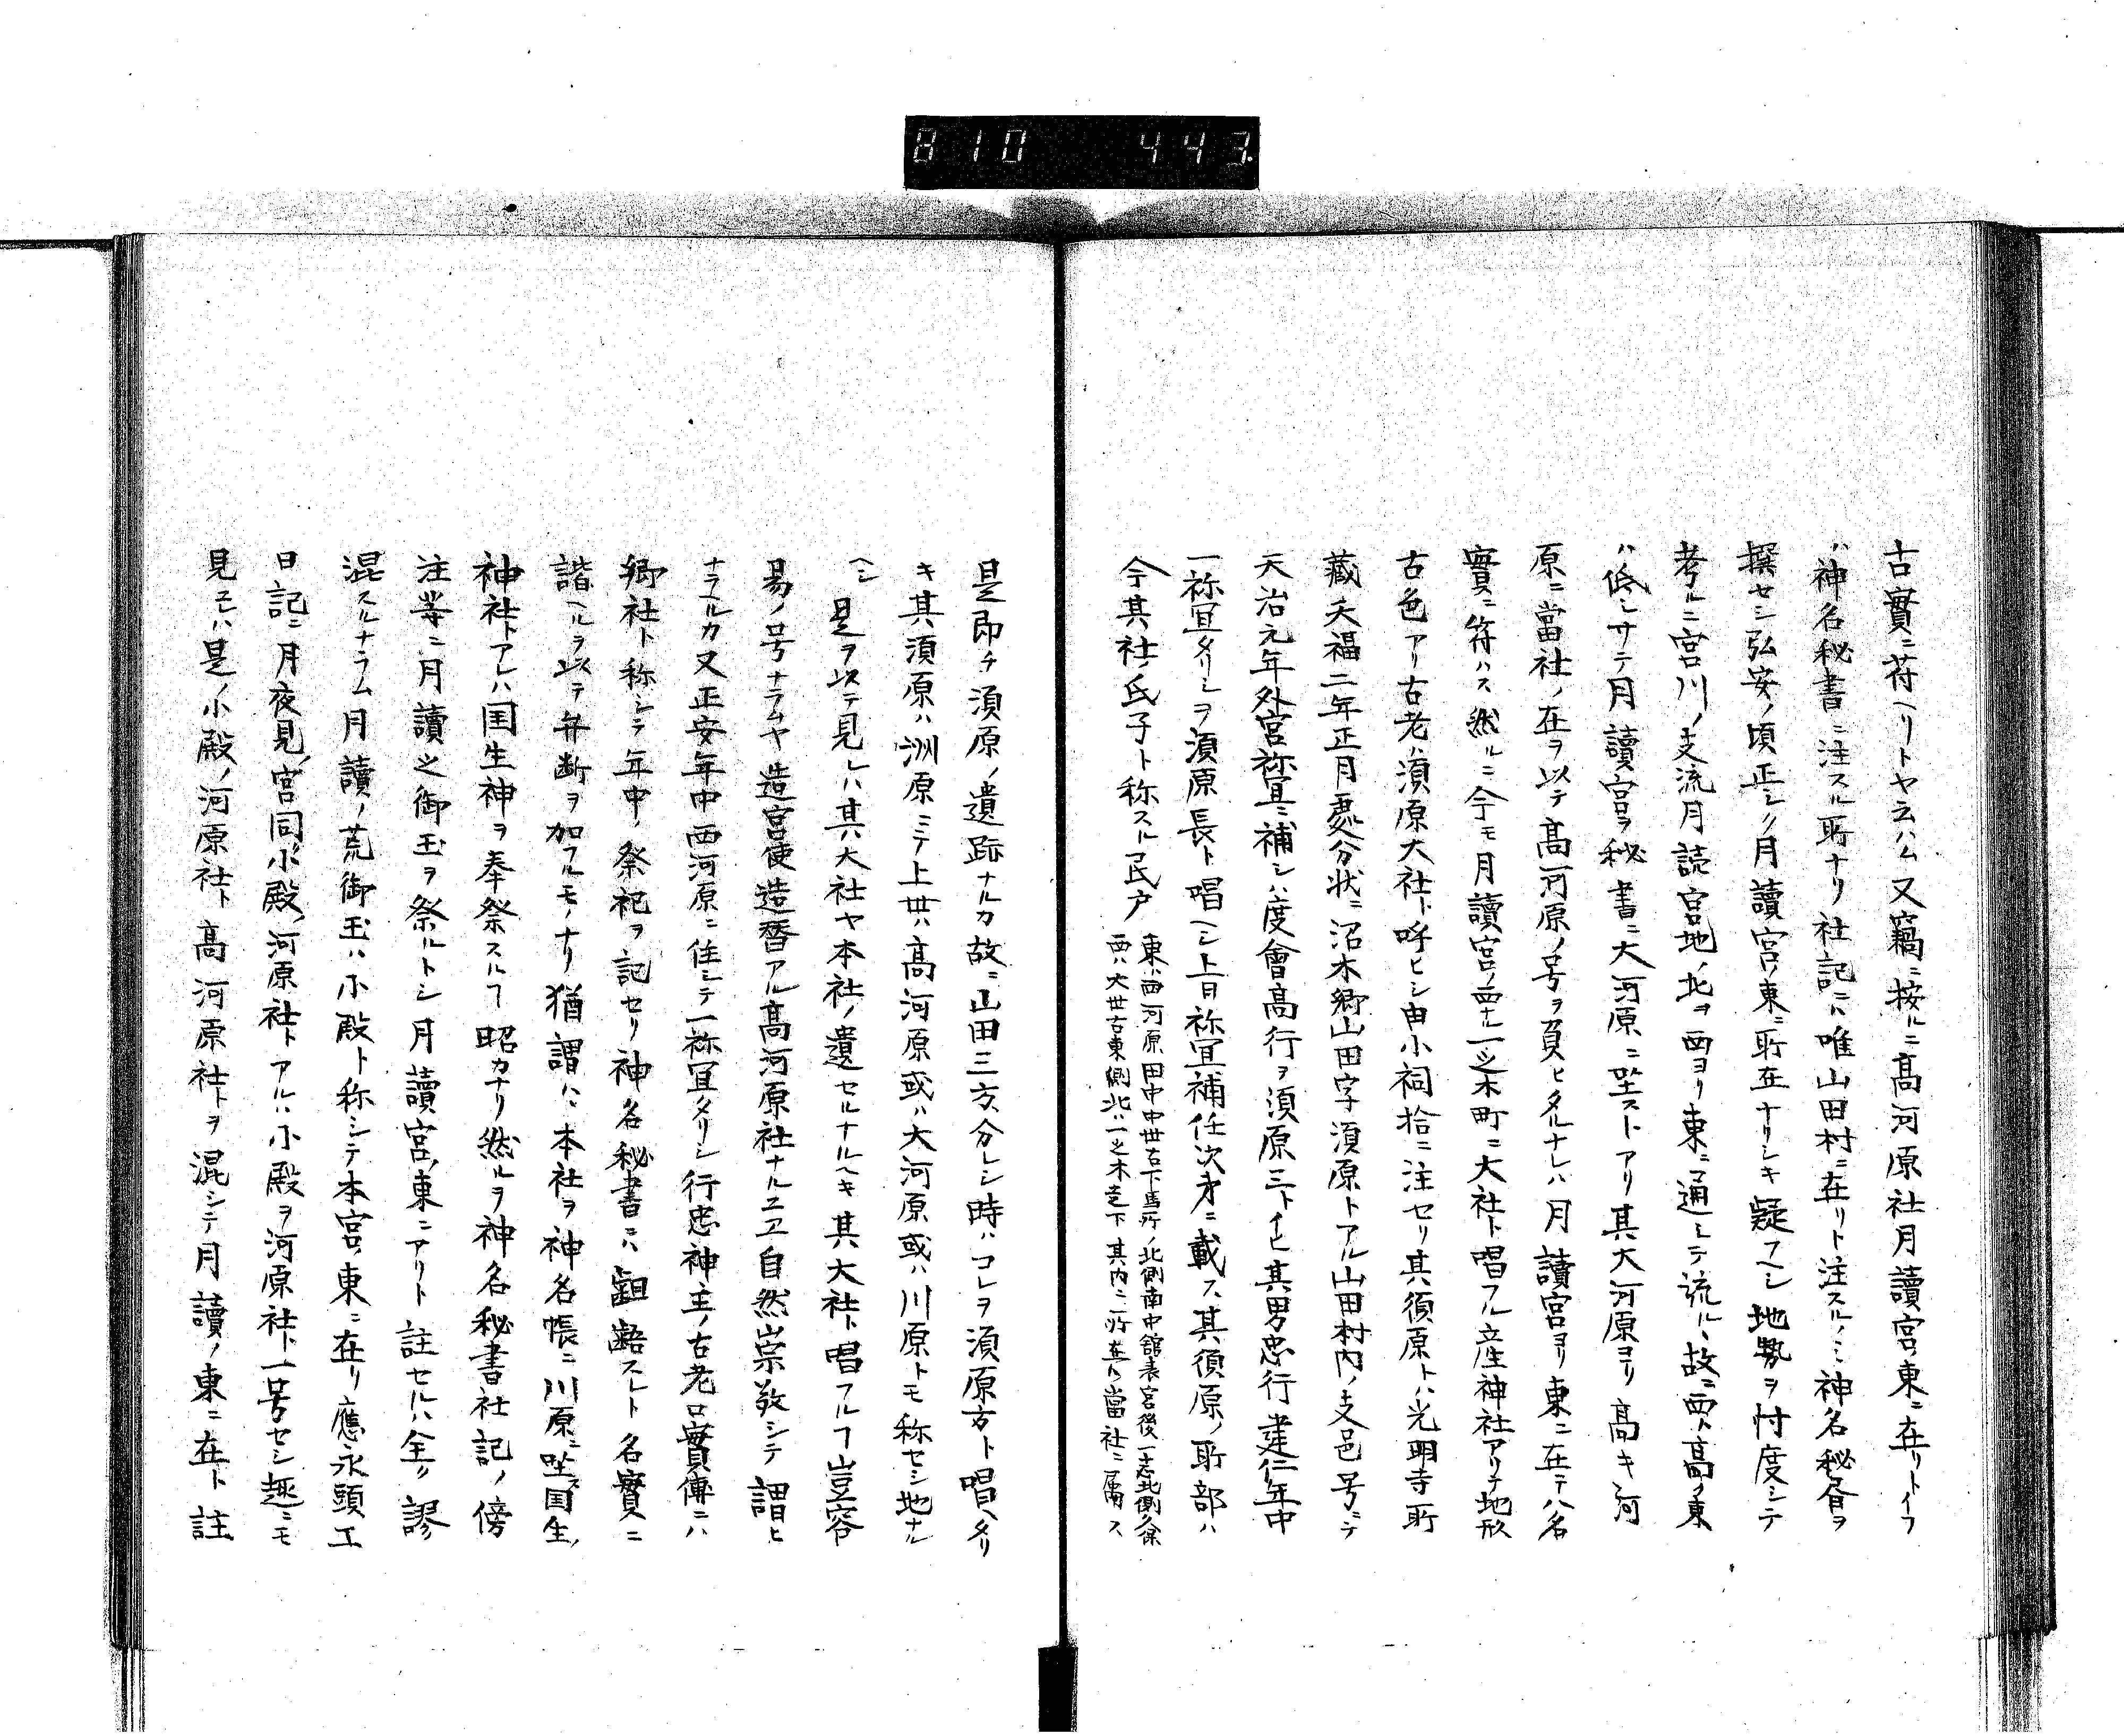 810 443.
古實ニ符ヘリトヤ云ハム又竊ニ按ルニ高河原社月讀宮ノ東ニ在リトイフ
ハ神名秘書ニ注スル所ナリ社記ニハ唯山田村ニ在リト注スルノミ神名秘書ヲ
撰セシ弘安ノ頃正シク月讀宮ノ東ニ所在ナリシキ疑フヘシ地勢ヲ忖度シテ
考ルニ宮川ノ支流月読宮地ノ北ヲ西ヨリ東ニ通シテ流ル故ニ西ハ高ク東
ハ低シサテ月讀宮ヲ秘書ニ大河原ニ坐ストアリ其大河原ヨリ高キ河
原ニ當社ノ在ヲ以テ高河原ノ号ヲ負ヒタルナレハ月讀宮ヨリ東ニ在テハ名
實ニ符ハス然ルニ今モ月讀宮ノ西ナル一之木町ニ大社ト唱フル産神社アリテ地形
古色アリ古老ハ須原大社ト呼ヒシ由小祠拾ニ注セリ其須原トハ光明寺所
藏天福二年正月處分状ニ沼木郷山田字須原トアル山田村内ノ支邑号ニテ
天治元年外宮祢宜ニ補シハ度會高行ヲ須原三トイヒ其男忠行建仁年中
一祢宜タリシヲ須原長ト唱ヘシ上日祢宜補任次才ニ載ス其須原ノ所部ハ
今其社ノ氏子ト称スル民戸
東ハ西河原田中中世古下馬所ノ北側南中館表宮後一志北側久保
西ハ大世古東側北ハ一之木走下其内ニ所在ハ當社ニ屬ス
是即チ須原ノ遺跡ナルカ故ニ山田三方ヘ分レシ時ハコレヲ須原方ト唱ヘタリ
キ其須原ハ洲原ニテ上世ハ高河原或ハ大河原或ハ川原トモ称セシ地ナル
ヘシ是ヲ以テ見レハ其大社ヤ本社ノ遺セルナルヘキ其大社ト唱フルフ豈容
易ノ号ナラムヤ造宮使造替アル高河原社ナルユヱ自然崇敬シテ謂ヒ
ナラヘルカ又正安年中西河原ニ住シテ一祢宜タリシ行忠神主ノ古老口實傳ニハ
郷社ト称シテ年中ノ祭祀ヲ記セリ神名秘書ニハ齟齬スレト名實ニ
諧ヘルヲ以テ弁断ヲ加フルモノナリ猶謂ハヽ本社ヲ神名帳ニ川原ニ坐ス国生ノ
神社トアレハ国生神ヲ奉祭スルフ昭カナリ然ルヲ神名秘書社記ノ傍
注等ニ月讀之御玉ヲ祭ルトシ月讀宮ノ東ニアリト註セルハ全ク謬
混スルナラム月讀ノ荒御玉ハ小殿ト称シテ本宮ノ東ニ在リ應永頭工
日記ニ月夜見ノ宮同小殿ノ河原社トアルハ小殿ヲ河原社ト一号セシ趣ニモ
見ユレハ是ノ小殿ノ河原社ト高河原社トヲ混シテ月讀ノ東ニ在ト註